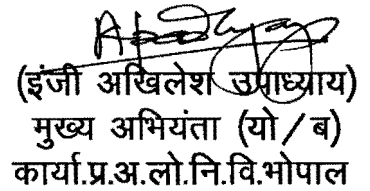 (इंजी अखिलेश उपाध्याय)
मुख्य अभियंता (यो/ब)
कार्या.प्र.अ.लो.नि.वि.भोपाल